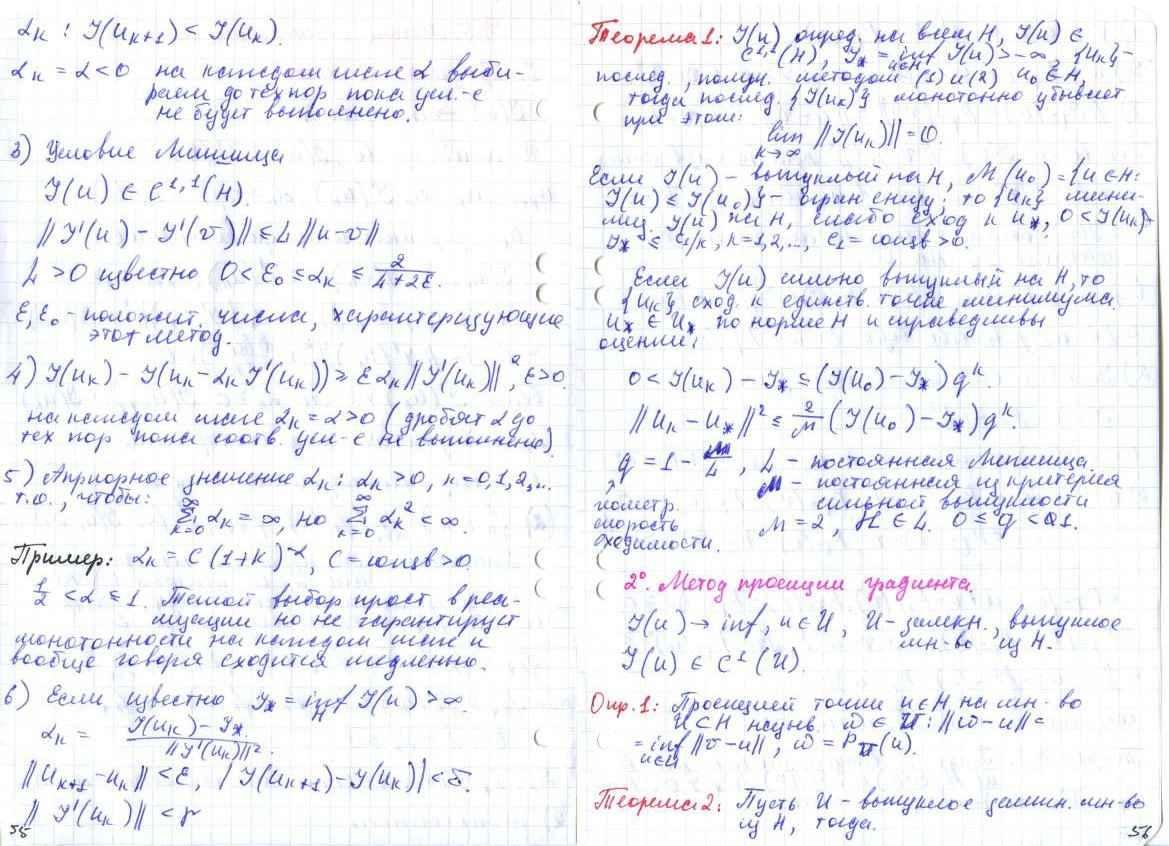 αк : J(uк+1) < J(uк).
αк = α < 0 на каждом шаге α выби-
раем до тех пор пока усл.-е
не будет выполнено.
3) Условие Липшица
J(u) ∈ C^{1,1}(H).
||J'(u) - J'(v)|| ≤ L ||u-v||
L > 0 известно 0 < ε₀ ≤ αк ≤ 2/(L+2ε).
ε, ε₀ - положит. числа, характеризующие
этот метод.
4) J(uк) - J(uк - αк J'(uк)) ≥ ε αк ||J'(uк)||², ε>0.
на каждом шаге αк = α > 0 (дробят α до
тех пор пока соотв. усл-е не выполнено).
5) Априорное значение αк : αк > 0, к = 0,1,2,...
т.о., чтобы: ∑_{к=0}^∞ αк = ∞, но ∑_{к=0}^∞ αк² < ∞.
Пример: αк = C (1+к)^{-α}, C = const > 0
1/2 < α ≤ 1. Такой выбор прост в реа-
лизации но не гарантирует
монотонности на каждом шаге и
вообще говоря сходится медленно.
6) Если известно J* = inf_H J(u) > ∞.
αк = (J(uк) - J*)/||J'(uк)||².
||uк+1 - uк|| < ε, |J(uк+1) - J(uк)| < δ.
||J'(uк)|| < γ
55
Теорема 1: J(u) опред. на всем H, J(u) ∈
C^{1,1}(H), J* = inf_{u∈H} J(u) > -∞, {uк} -
послед., получ. методом (1) и (2) u₀ ∈ H,
тогда послед. {J(uк)} монотонно убывает
при этом:
lim_{к→∞} ||J'(uк)|| = 0.
Если J(u) - выпуклый на H, M(u₀) = {u ∈ H:
J(u) ≤ J(u₀)} - огран снизу: то {uк} мини-
миз. J(u) на H, слабо сход к u*, 0 < J(uк) -
J* ≤ c₁/к, к = 1,2,..., c₁ = const > 0.
Если J(u) сильно выпуклый на H, то
{uк} сход. к единств. точке минимума
u* ∈ U* по норме H и справедливы
оценки:
0 < J(uк) - J* ≤ (J(u₀) - J*) q^к.
||uк - u*||² ≤ 2/μ (J(u₀) - J*) q^к.
q = 1 - μ/L, L - постоянная Липшица.
μ - постоянная из критерия
геометр. сильной выпуклости
скорость μ = 2, H ∈ L. 0 ≤ q < 1.
сходимости.
2°. Метод проекции градиента.
J(u) → inf, u ∈ U, U - замкн., выпуклое
мн-во из H.
J(u) ∈ C¹(U).
Опр. 1: Проекцией точки u ∈ H на мн-во
U ⊂ H назыв. ω ∈ U : ||ω - u|| =
= inf_{u∈U} ||v - u||, ω = P_U(u).
Теорема 2: Пусть U - выпуклое замкн. мн-во
из H, тогда.
56